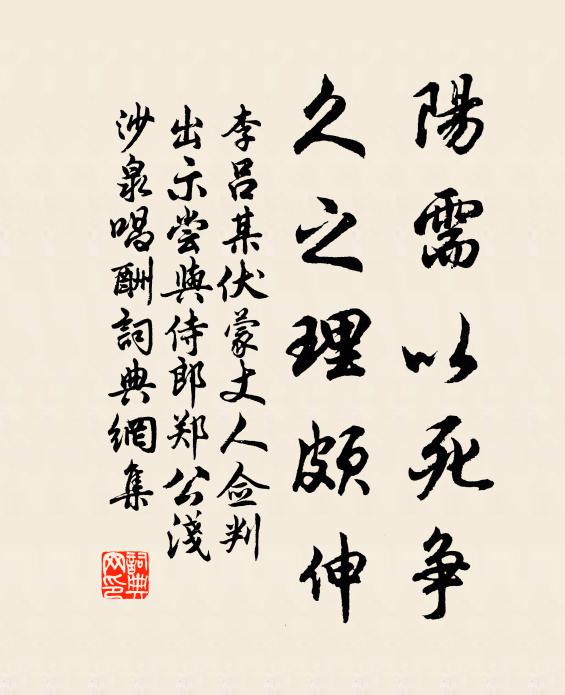 陽需以死争
久之理頗伸
李吕某伏蒙丈人佥判
出示尝與侍郎郑公淺
沙泉唱酬詞典網集
詞典网印